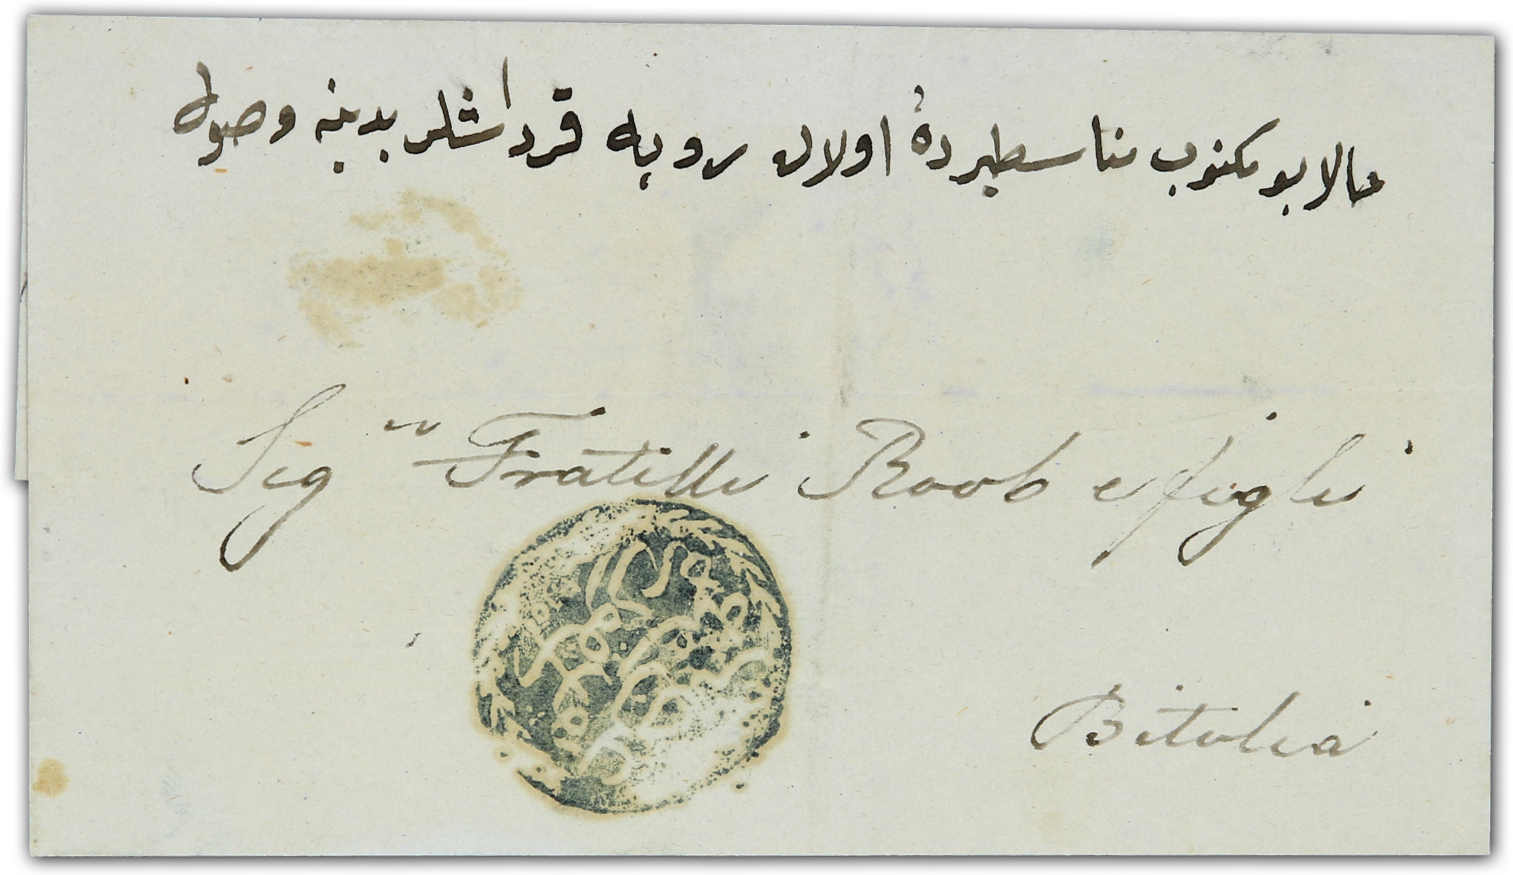 حالا بو مكتوب مناسطيرده اولان روبه قرداشلر يدينه وصول
Sig.ri Fratelli Roob e figli
Bitolia